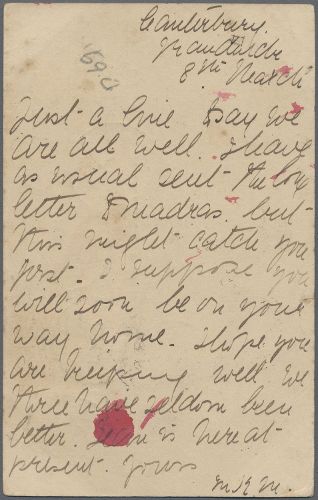 Canterbury
8th March
690
Just a line to say we
are all well. I have
as usual sent the long
letter to Madras. but
this might catch you
first. I suppose you
will soon be on your
way home. I hope you
are keeping well. We
three have seldom been
better. is here at
present. Yours
M.K.M.